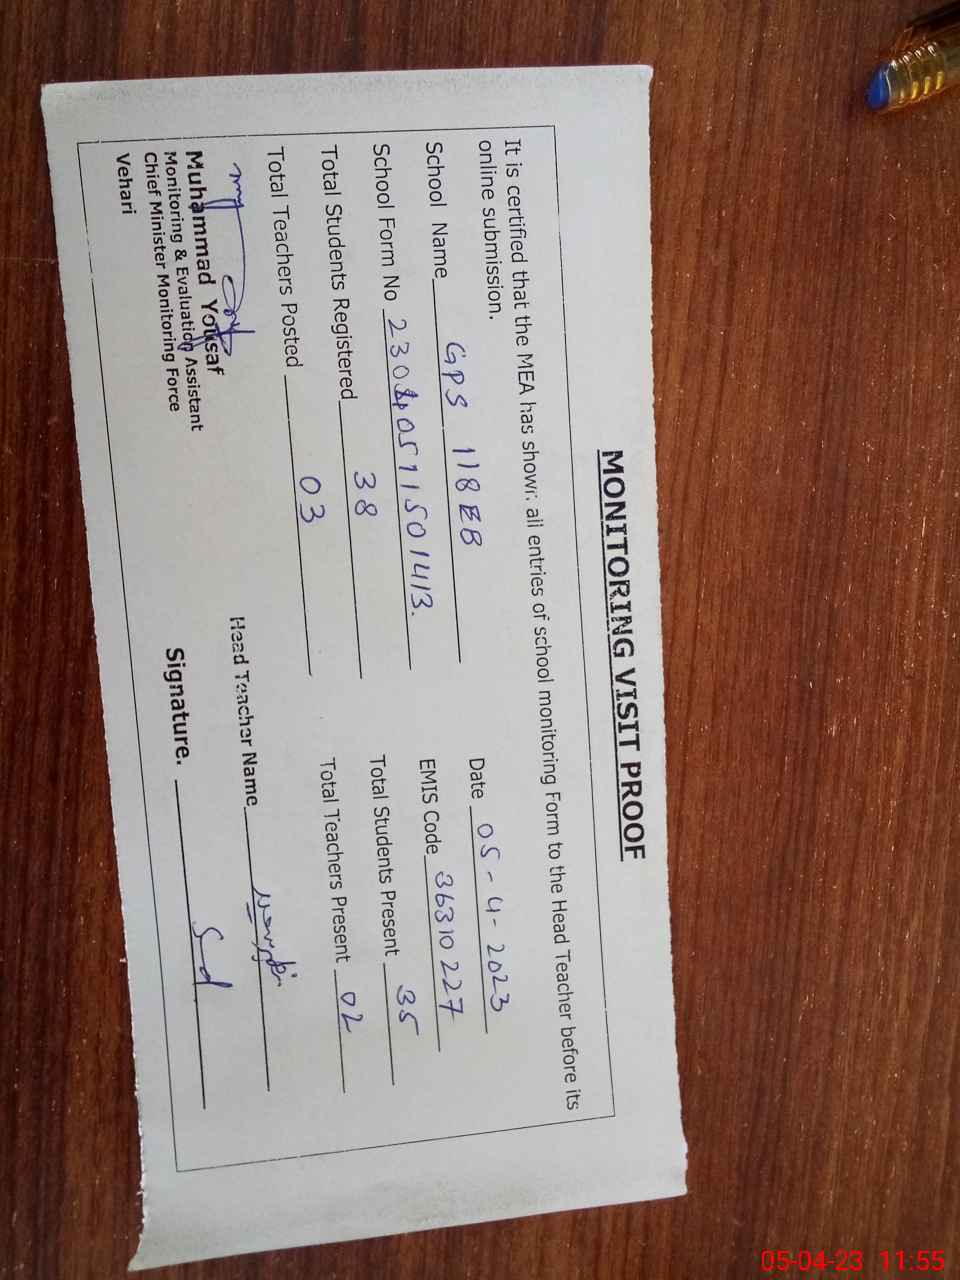 MONITORING VISIT PROOF
It is certified that the MEA has shown all entries of school monitoring Form to the Head Teacher before its
online submission.
School Name GPS 118EB
Date 05-4-2023
School Form No
EMIS Code 36310227
Total Students Registered 38
Total Students Present 35
Total Teachers Posted 03
Total Teachers Present 02
Muhammad Yousaf
Monitoring & Evaluation Assistant
Chief Minister Monitoring Force
Vehari
Head Teacher Name
Signature. Sd
05-04-23 11:55